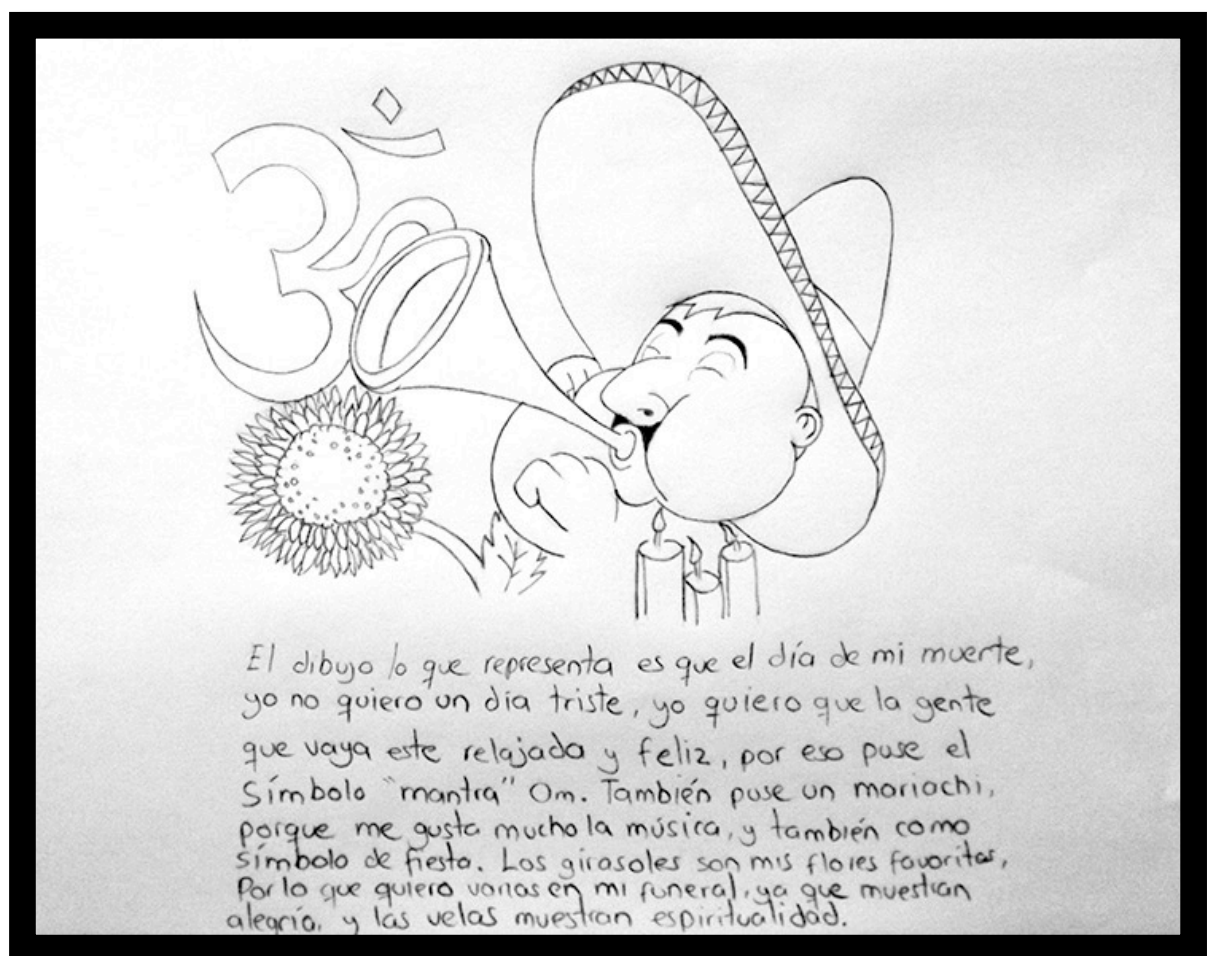 El dibujo lo que representa es que el día de mi muerte,
yo no quiero un dia triste, yo quiero que la gente
que vaya este relajada y feliz, por eso puse el
Símbolo "mantra" Om. También puse un mariachi,
porque me gusta mucho la música, y también como
símbolo de fiesta. Los girasoles son mis flores favoritas,
Por lo que quiero varias en mi funeral, ya que muestran
alegría, y las velas muestran espiritualidad.